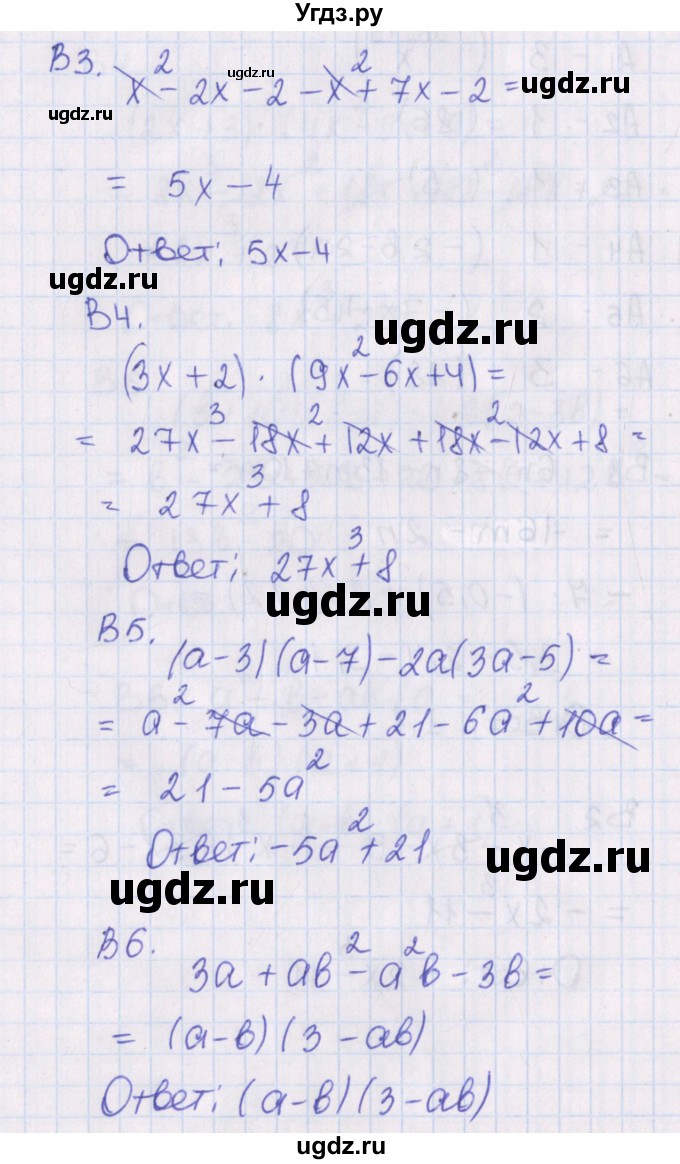 Угдз.ру
B3. x² - 2x - 2 - x² + 7x - 2 =
ugdz.ru
ugdz.ru
ugdz.ru
= 5x - 4
Ответ: 5x - 4
ugdz.ru
B4.
ugdz.ru
(3x + 2) · (9x² - 6x + 4) =
= 27x³ - 18x² + 12x + 18x² - 12x + 8 =
= 27x³ + 8
Ответ: 27x³ + 8
ugdz.ru
B5.
(a - 3)(a - 7) - 2a(3a - 5) =
= a² - 7a - 3a + 21 - 6a² + 10a =
= 21 - 5a²
Ответ: -5a² + 21
ugdz.ru
ugdz.ru
B6.
3a + ab² - a²b - 3b =
= (a - b)(3 - ab)
Ответ: (a - b)(3 - ab)
ugdz.ru